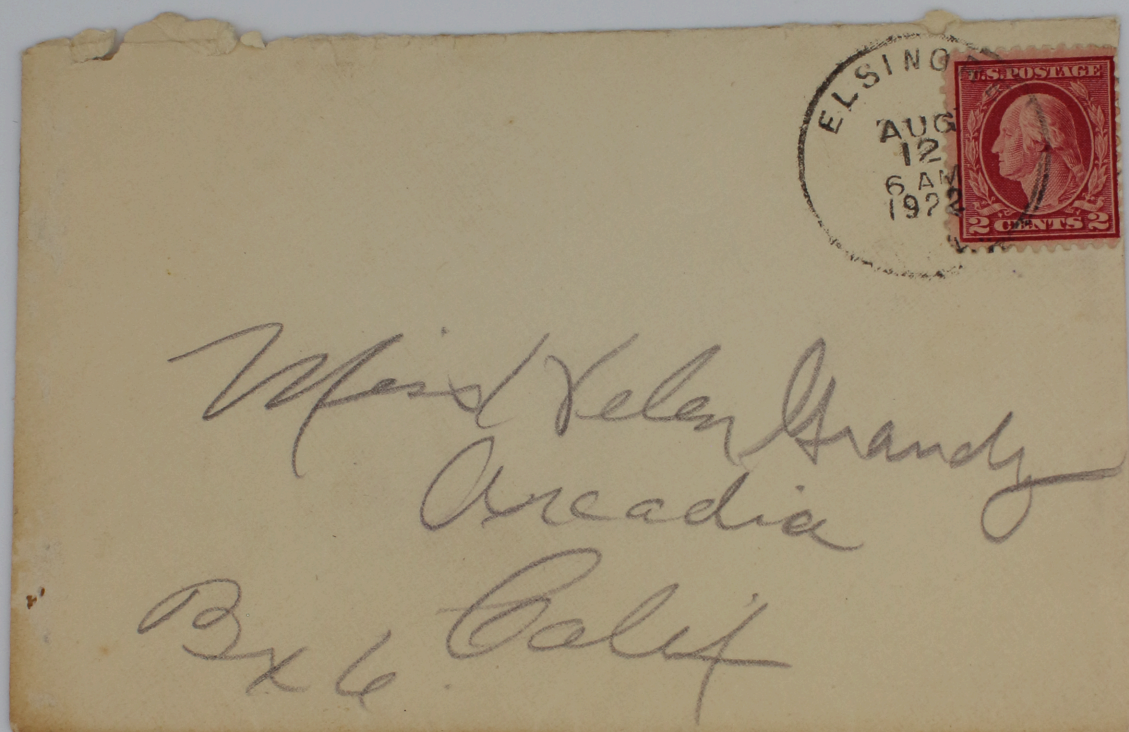 ELSINO
AUG
12
6 AM
1922
U.S. POSTAGE
2 CENTS 2
Miss Helen Grandy
Arcadia
Calif
Bx 6